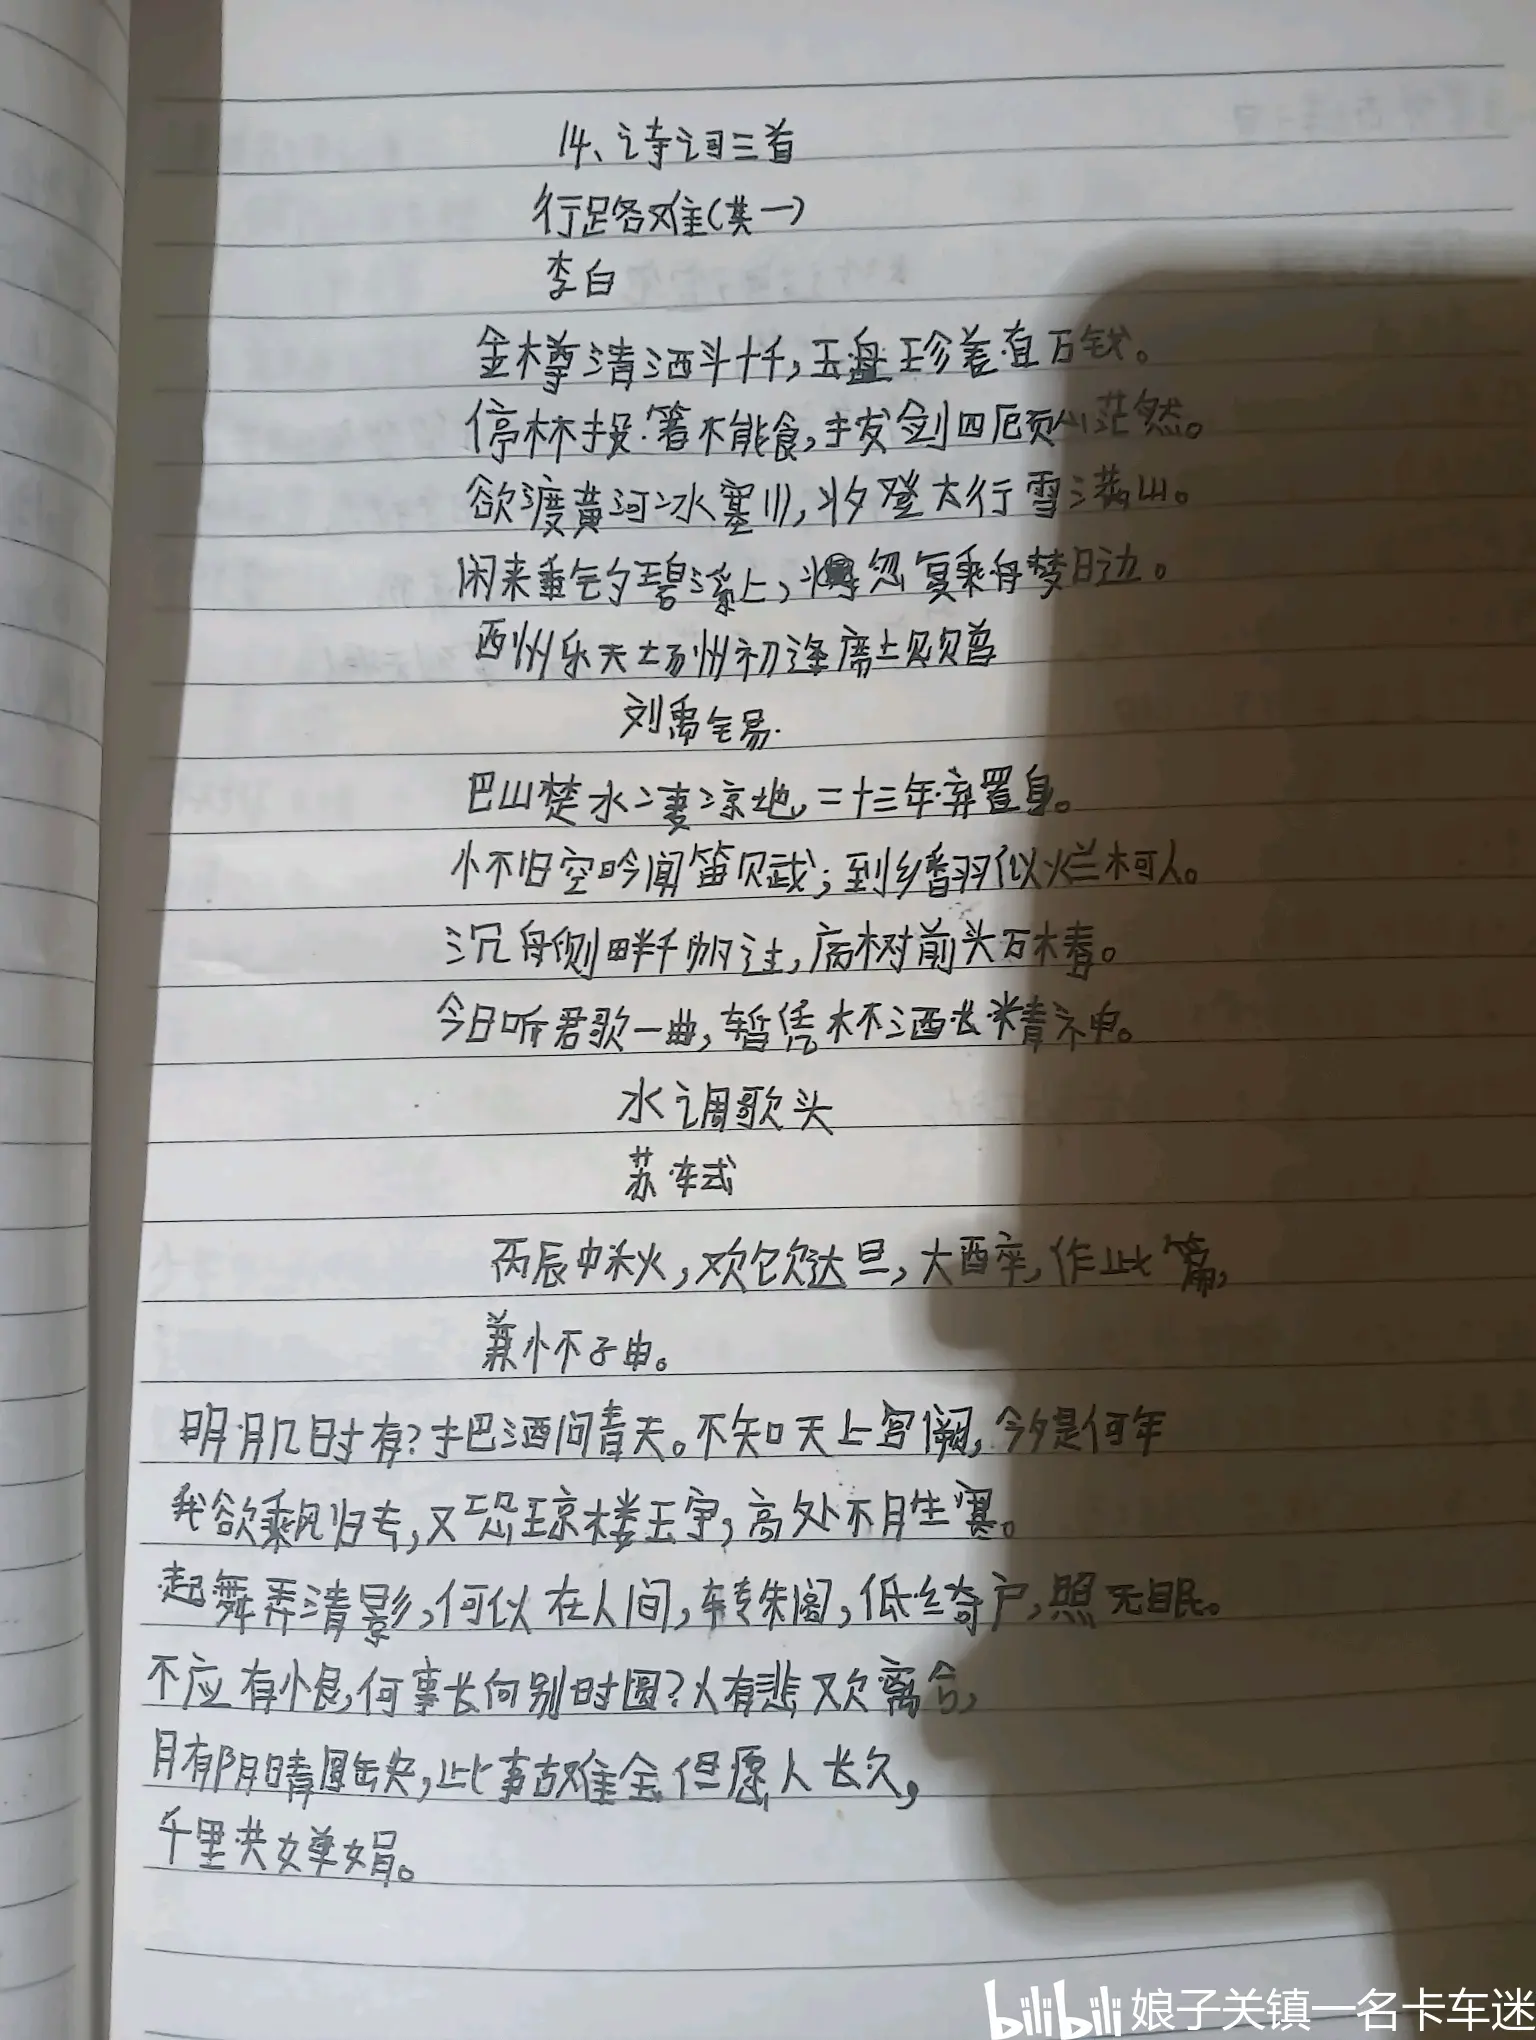 14、诗词三首
行路难(其一)
李白
金樽清酒斗十千，玉盘珍羞直万钱。
停杯投箸不能食，拔剑四顾心茫然。
欲渡黄河冰塞川，将登太行雪满山。
闲来垂钓碧溪上，忽复乘舟梦日边。
西州乐天扬州初逢席上见赠
刘禹锡
巴山楚水凄凉地，二十三年弃置身。
怀旧空吟闻笛赋；到乡翻似烂柯人。
沉舟侧畔千帆过，病树前头万木春。
今日听君歌一曲，暂凭杯酒长精神。
水调歌头
苏轼
丙辰中秋，欢饮达旦，大醉，作此篇，
兼怀子由。
明月几时有？把酒问青天。不知天上宫阙，今夕是何年
我欲乘风归去，又恐琼楼玉宇，高处不胜寒。
起舞弄清影，何似在人间，转朱阁，低绮户，照无眠。
不应有恨，何事长向别时圆？人有悲欢离合，
月有阴晴圆缺，此事古难全 但愿人长久，
千里共婵娟。
bilibili 娘子关镇一名卡车迷